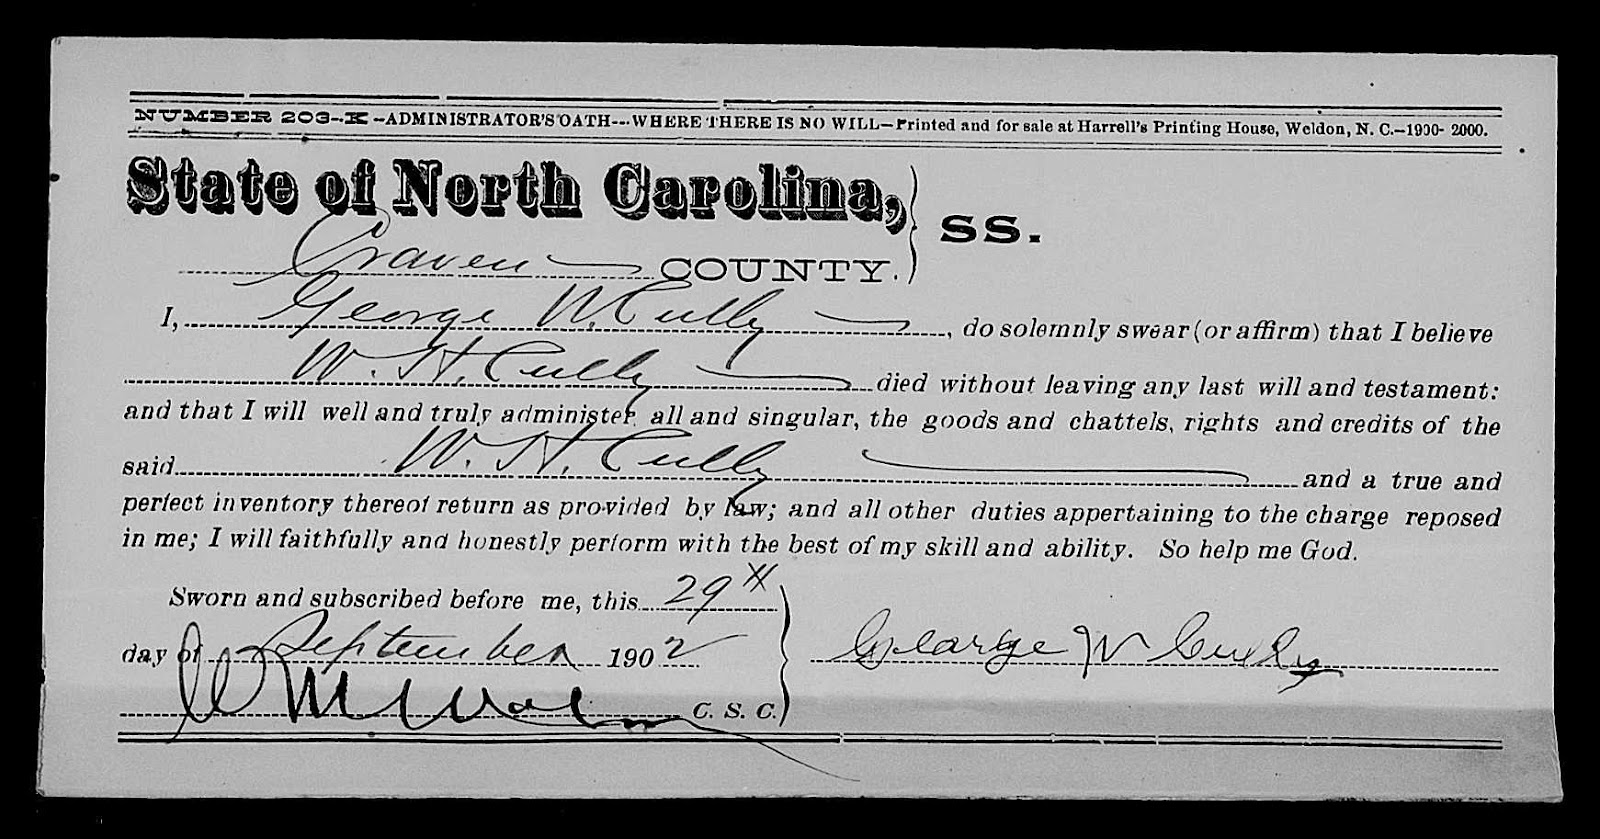 NUMBER 203--K--ADMINISTRATOR'S OATH---WHERE THERE IS NO WILL--Printed and for sale at Harrell's Printing House, Weldon, N. C.--1900- 2000.
State of North Carolina,
SS.
Craven COUNTY.
I, George W. Cully, do solemnly swear (or affirm) that I believe
W. H. Cully died without leaving any last will and testament:
and that I will well and truly administer all and singular, the goods and chattels, rights and credits of the
said W. H. Cully and a true and
perfect inventory thereof return as provided by law; and all other duties appertaining to the charge reposed
in me; I will faithfully and honestly perform with the best of my skill and ability. So help me God.
Sworn and subscribed before me, this 29th
day of September 1902
George W Cully
C. S. C.